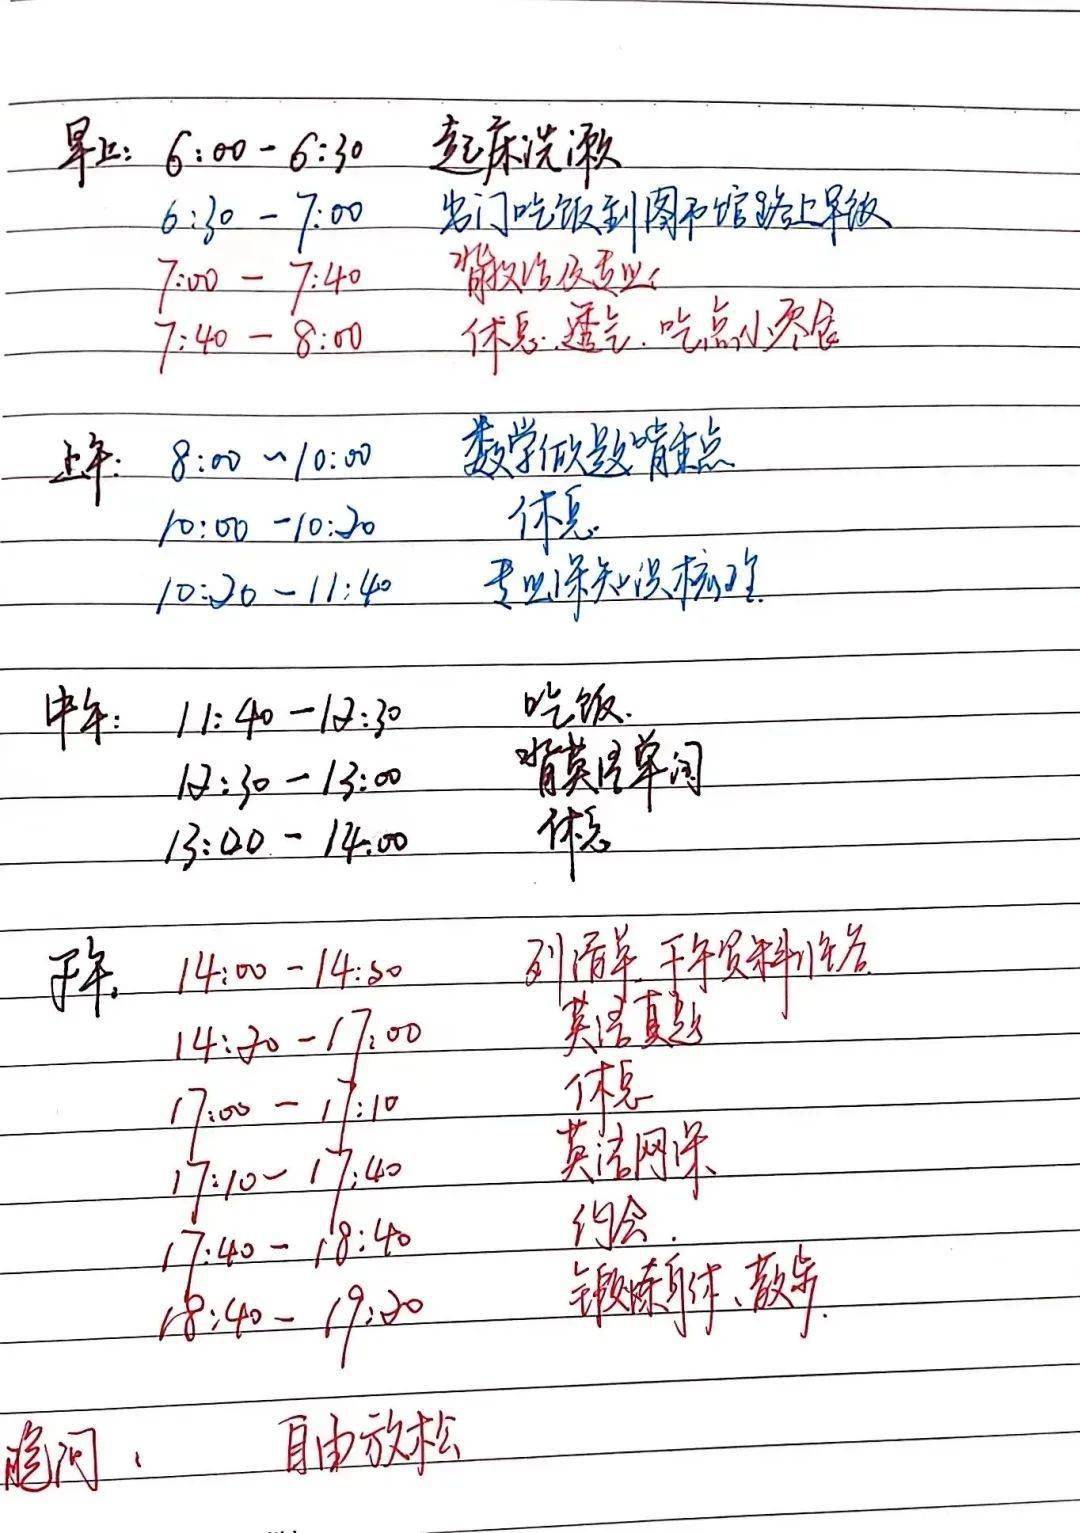 早上: 6:00-6:30 起床洗漱
6:30-7:00 出门吃饭到图书馆路上早饭
7:00-7:40 背政治及专业
7:40-8:00 休息.透气.吃点小零食
上午: 8:00~10:00 数学做题背重点
10:00-10:20 休息.
10:20-11:40 专业课知识梳理.
中午: 11:40-12:30 吃饭.
12:30-13:00 背英语单词
13:00-14:00 休息
下午. 14:00-14:20 列清单.下午资料准备.
14:20-17:00 英语真题
17:00-17:10 休息
17:10-17:40 英语网课
17:40-18:40 约会.
18:40-19:20 锻炼身体、散步.
晚间: 自由放松